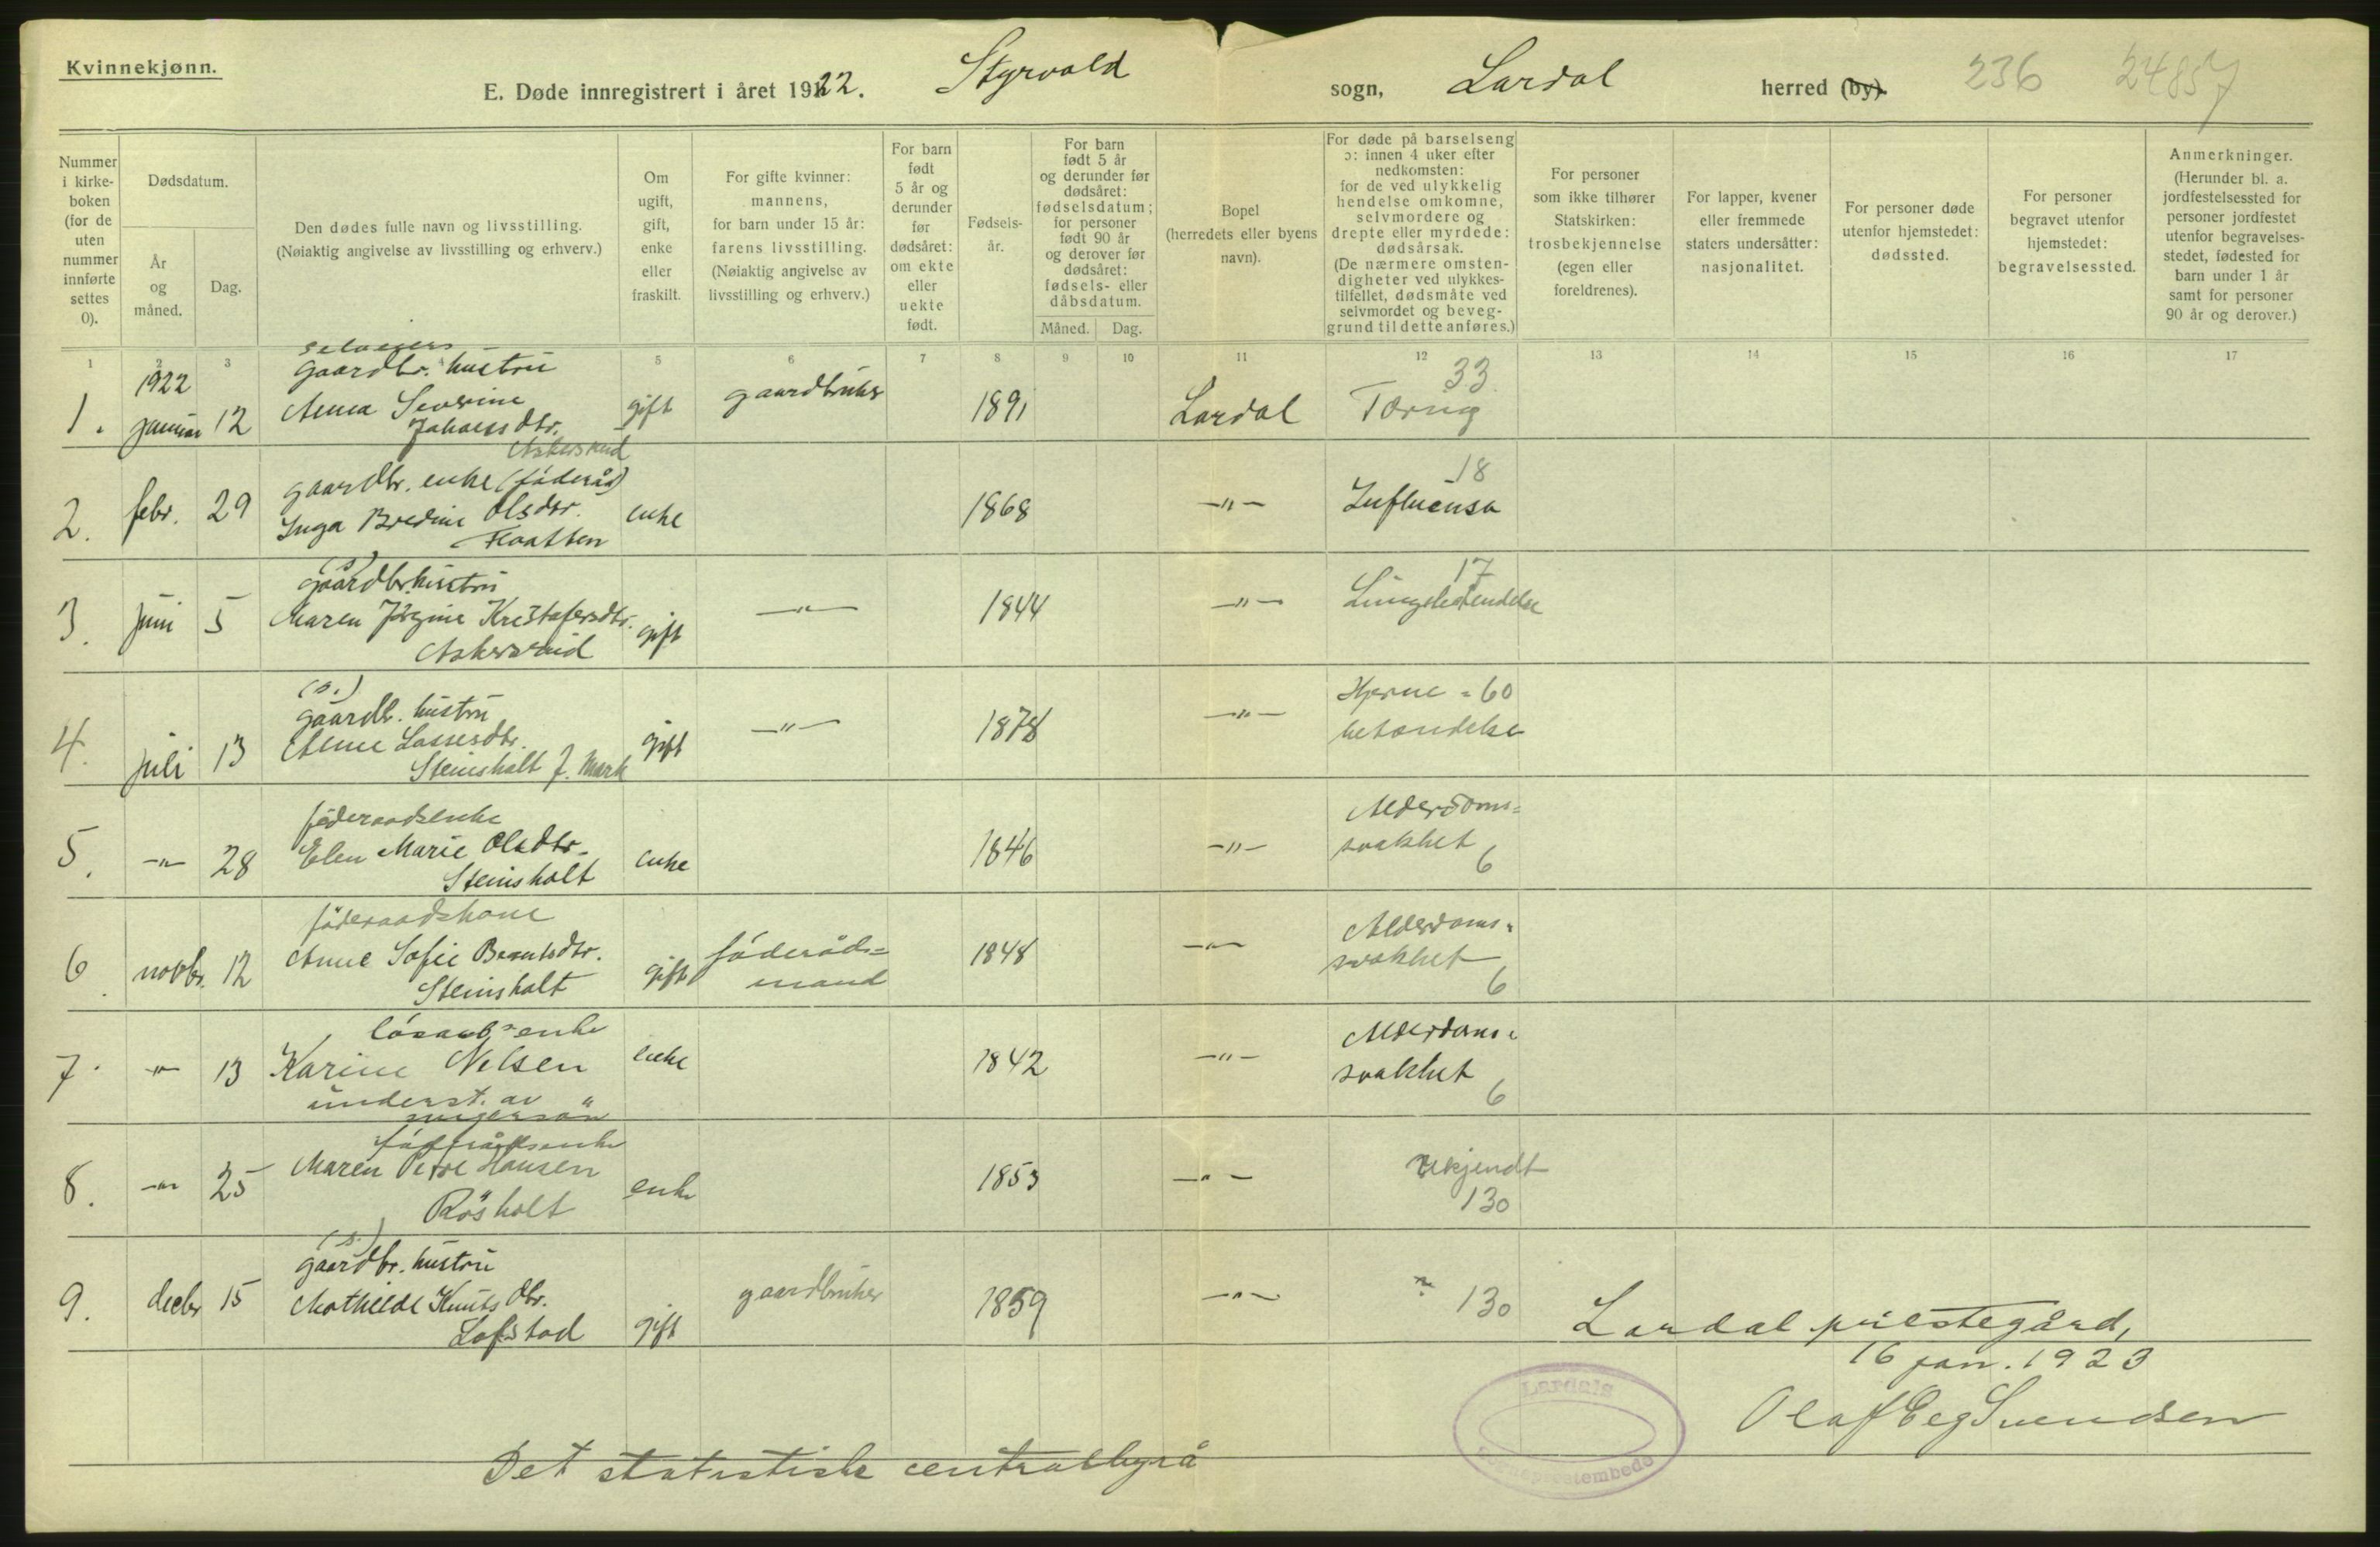 Kvinnekjønn.
E. Døde innregistrert i året 1922. Styrvold sogn, Lardal herred (by). 236 24857
Nummer i kirke- boken (for de uten nummer innførte settes 0).
Dødsdatum.
År og måned.
Dag.
Den dødes fulle navn og livsstilling.
(Nøiaktig angivelse av livsstilling og erhverv.)
Om ugift, gift, enke eller fraskilt.
For gifte kvinner: mannens, for barn under 15 år: farens livsstilling. (Nøiaktig angivelse av livsstilling og erhverv.)
For barn født 5 år og derunder før dødsåret: om ekte eller uekte født.
Fødsels- år.
For barn født 5 år og derunder før dødsåret: fødselsdatum; for personer født 90 år og derover før dødsåret: fødsels- eller dåbsdatum.
Måned. Dag.
Bopel (herredets eller byens navn).
For døde på barselseng ɔ: innen 4 uker efter nedkomsten: for de ved ulykkelig hendelse omkomne, selvmordere og drepte eller myrdede: dødsårsak. (De nærmere omsten- digheter ved ulykkes- tilfellet, dødsmåte ved selvmordet og beveg- grund til dette anføres.)
For personer som ikke tilhører Statskirken: trosbekjennelse (egen eller foreldrenes).
For lapper, kvener eller fremmede staters undersåtter: nasjonalitet.
For personer døde utenfor hjemstedet: dødssted.
For personer begravet utenfor hjemstedet: begravelsessted.
Anmerkninger. (Herunder bl. a. jordfestelsessted for personer jordfestet utenfor begravelses- stedet, fødested for barn under 1 år samt for personer 90 år og derover.)
1 2 3 5 6 7 8 9 10 11 12 13 14 15 16 17
selveiers
gaardbr. hustru
1922
1. januar 12 Anna Severine gift gaardbruker 1891 Lardal Tæring 33
Johansdtr.
Askerud
gaardbr. enke (föderåd)
2. febr. 29 Inga Bredine Olsdtr. enke 1868 -"- Influensa 18
Flaatten
(s)
gaardbr. hustru
3. juni 5 Maren Jörgine Kristofersdtr. gift -"- 1844 -"- Lungebetendelse 17
(s.)
gaardb. hustru
4. juli 13 Anne Lassesdtr. gift -"- 1878 -"- Hjerne= 60
Steinsholt f. Mark betændelse
föderaadsenke
5. -"- 28 Elen Marie Olsdtr. enke 1846 -"- Alderdoms=
Steinsholt svakhet 6
föderaadskone
6. novbr. 12 Anne Sofie Berntsdtr. gift föderåds= 1848 -"- Alderdoms=
Steinsholt mand svakhet 6
enke
7. -"- 13 Karine Nilsen enke 1842 -"- Alderdoms=
underst. av svakhet 6
8. -"- 25 Maren Petre Hansen enke 1853 -"- ukjendt
Rösholt 130
(s.)
gaardbr. hustru
9. decbr 15 Mathilde Knutsdtr. gift gaardbruker 1859 -"- 130
Lofstad
Lardal prestegård,
16 jan. 1923
Olaf Eeg Svendsen
Lardals
sogneprestembede
Det statistiske centralbyrå